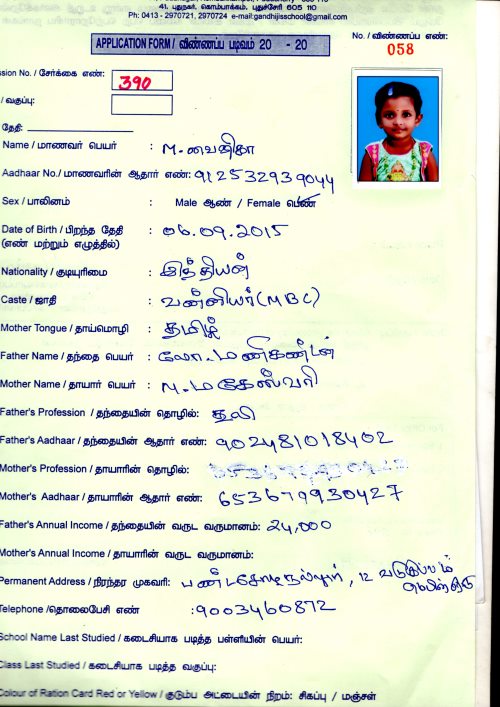 41. புதுநகர், கொம்பாக்கம், புதுச்சேரி 605 110
Ph: 0413 - 2970721, 2970724 e-mail:gandhijisschool@gmail.com
APPLICATION FORM / விண்ணப்ப படிவம் 20 - 20
No. / விண்ணப்ப எண்:
058
ssion No. / சேர்க்கை எண்: 390
/ வகுப்பு:
தேதி:
Name / மாணவர் பெயர் : M.வைனிகா
Aadhaar No./ மாணவரின் ஆதார் எண்: 912532939044
Sex / பாலினம் : Male ஆண் / Female பெண்
Date of Birth / பிறந்த தேதி : 06.09.2015
(எண் மற்றும் எழுத்தில்)
Nationality / குடியுரிமை : இந்தியன்
Caste / ஜாதி : வன்னியர்(MBC)
Mother Tongue / தாய்மொழி : தமிழ்
Father Name / தந்தை பெயர் : லோ.மணிகண்டன்
Mother Name / தாயார் பெயர் : M.மகேஸ்வரி
Father's Profession / தந்தையின் தொழில்: கூலி
Father's Aadhaar / தந்தையின் ஆதார் எண்: 902481018402
Mother's Profession / தாயாரின் தொழில்:
Mother's Aadhaar / தாயாரின் ஆதார் எண்: 653679930427
Father's Annual Income / தந்தையின் வருட வருமானம்: 24,000
Mother's Annual Income / தாயாரின் வருட வருமானம்:
Permanent Address / நிரந்தர முகவரி: 12
Telephone /தொலைபேசி எண் :9003460872
School Name Last Studied / கடைசியாக படித்த பள்ளியின் பெயர்:
Class Last Studied / கடைசியாக படித்த வகுப்பு:
Colour of Ration Card Red or Yellow / குடும்ப அட்டையின் நிறம்: சிகப்பு / மஞ்சள்